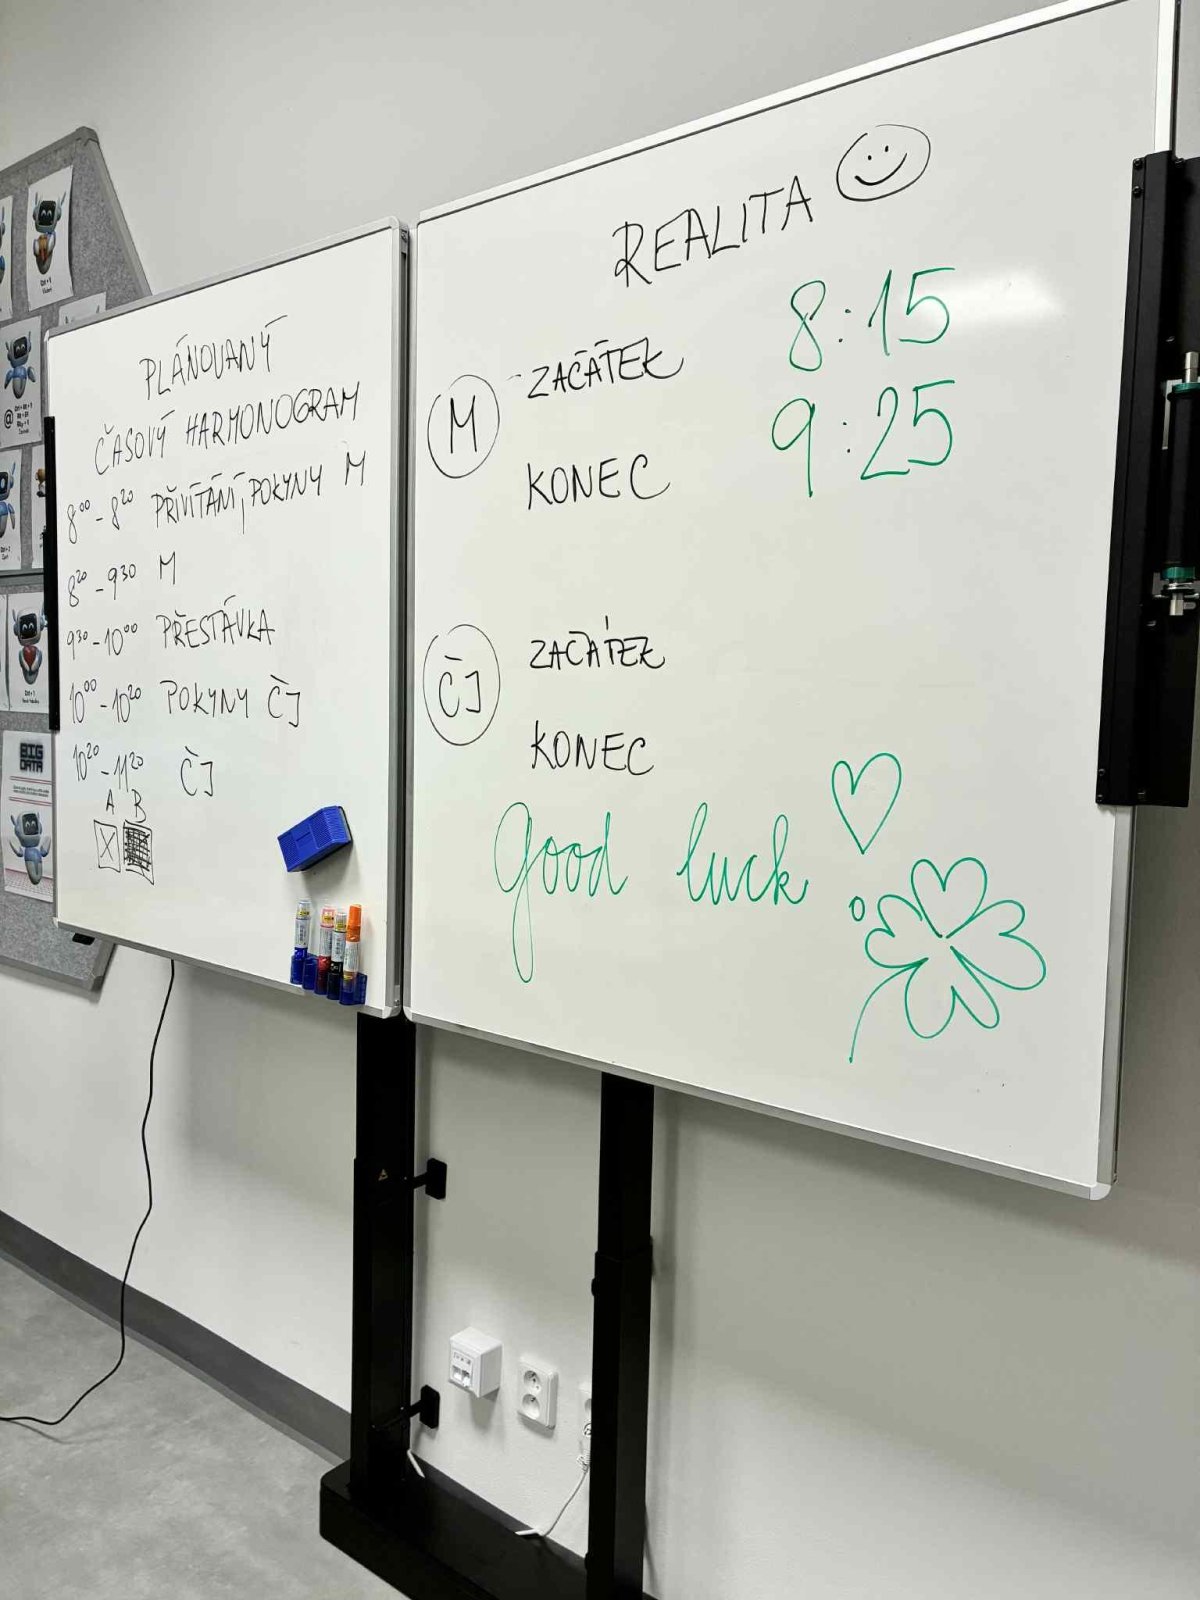 PLÁNOVANÝ
ČASOVÝ HARMONOGRAM
8⁰⁰ - 8²⁰ PŘIVÍTÁNÍ, POKYNY M
8²⁰ - 9³⁰ M
9³⁰ - 10⁰⁰ PŘESTÁVKA
10⁰⁰ - 10²⁰ POKYNY ČJ
10²⁰ - 11²⁰ ČJ
A B
REALITA
M
ZAČÁTEK 8:15
KONEC 9:25
ČJ
ZAČÁTEK
KONEC
good luck
BIG
DATA